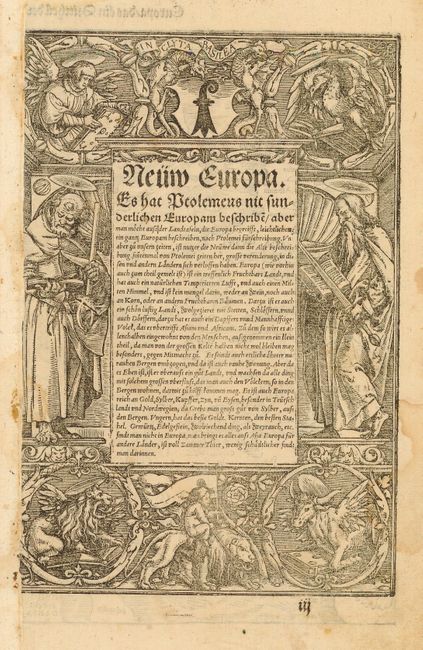 INCLYTA BASILEA
Neüw Europa.
Es hat Ptolemeus nit sun-
derlichen Europam beschribẽ / aber
man möcht auß der Landtaflen, die Europa begreifft, leichtlichen,
ein gantz Europam beschreiben, nach Ptolemei fürschreibung. Vn
aber zů vnsern zeiten, ist nutzer die Neüwe dann die Alte beschrei-
bung, seitenmal von Ptolemei zeiten her, grosse verenderung, in di-
sen vnd andern Ländern sich verloffen haben. Europa (wie vorhin
auch zum theil gemelt ist) ist ein treffenlich Fruchtbars Landt, vnd
hat auch ein natürlichen Temperierten Lufft, vnd auch einen Mil-
ten Himmel, vnd ist kein mangel darin, weder an Wein, noch auch
an Korn, oder an andern Fruchtbaren Bäumen. Darzů ist es auch
ein schön lustig Landt, Wolgeziert mit Stetten, Schlössern, vnnd
auch Dörffern, darzů hat es auch ein Dapffers vnnd Mannhafftigs
Volck, das es vbertrifft Asiam vnd Africam. Zů dem so wirt es al-
lenthalben eingewohnt von den Menschen, außgenommen ein klein
theil, da man von der grossen Kelte halben nicht wol bleiben mag
besonders, gegen Mitnacht zů. Es seindt auch etliche öhrter mit
rauhen Bergen vmbzogen, vnd da ist auch rauhe Narung. Aber da
es Eben ist, ist es vberauß ein gůt Landt, vnd wachsen da alle ding
mit solchem grossen vberfluß, das man auch den Völckern, so in den
Bergen wohnen, darmit zů hilff kommen mag. Es ist auch Europa
reich an Gold, Sylber, Kupffer, Zyn, vñ Eysen, besonder in Teütsch-
landt vnd Nordwegien, da Grebt man groß gůt von Sylber, auß
den Bergen. Vngern, hat das beste Goldt. Kernten, den besten Sta-
hel. Gewürtz, Edelgestein, Wolriechend ding, als Weyrauch, etc.
findt man nicht in Europa, man bringt es alles auß Asia. Europa für
andere Länder, ist voll Zammer Thier, wenig schädlicher findt
man darinnen.
iij